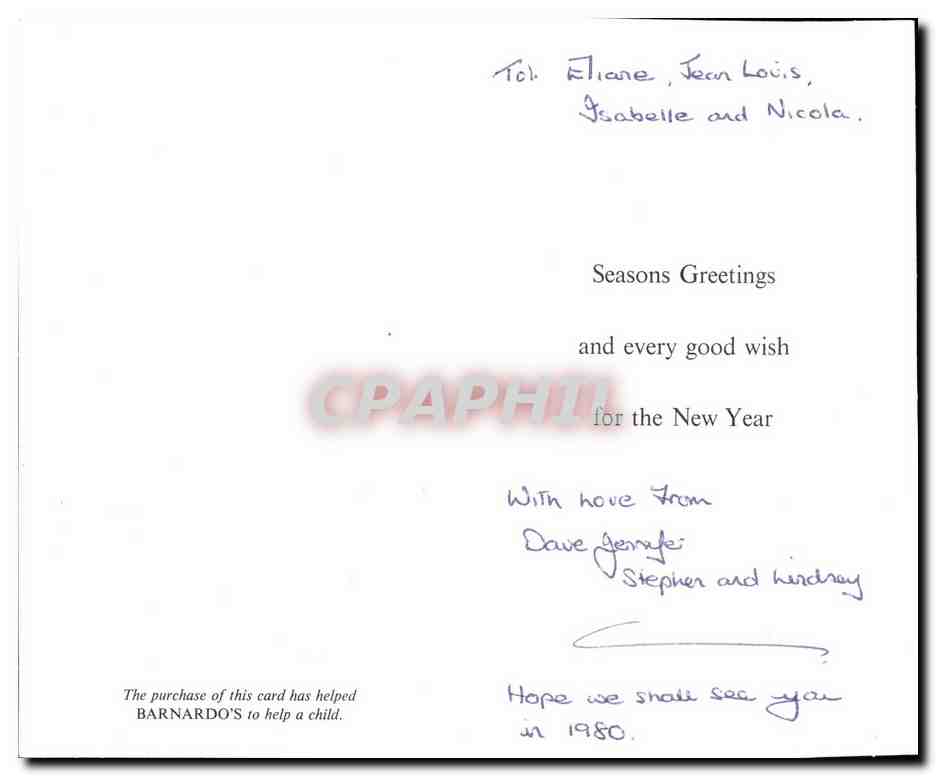 To:- Eliane, Jean Louis,
Isabelle and Nicola.
Seasons Greetings
and every good wish
for the New Year
CPAPHIL
With Love From
Dave Jennifer
Stephen and Lindsay
Hope we shall see you
in 1980.
The purchase of this card has helped
BARNARDO'S to help a child.